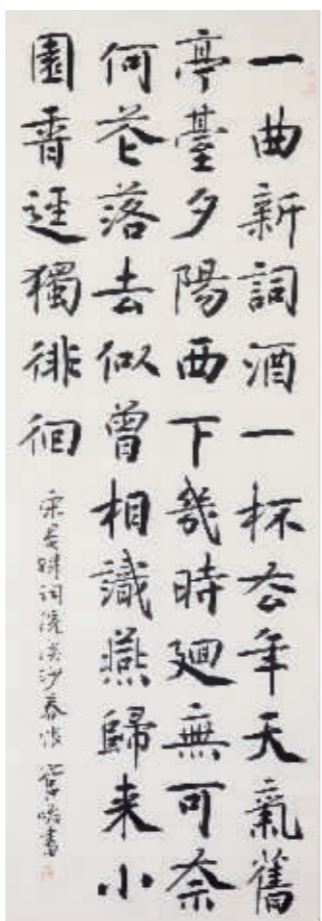 一曲新詞酒一杯去年天氣舊
亭臺夕陽西下幾時廻無可奈
何花落去似曾相識燕歸来小
園香逕獨徘徊
宋晏殊词浣溪沙春恨 書